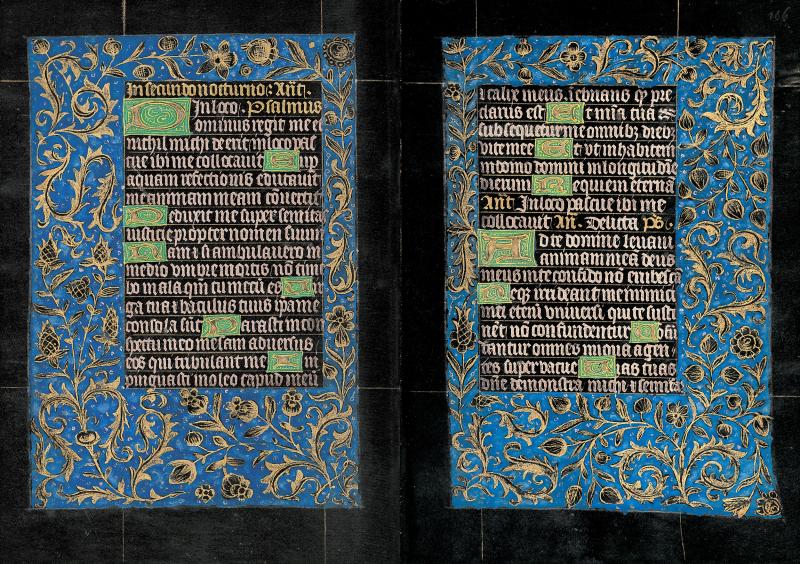 In secundo nocturno. Añt.
In loco. Psalmus
Dominus regit me et
nichil michi deerit in loco pas
cue ibi me collocauit Sup
aquam refectionis educauit
me animam meam conuertit
Deduxit me super semitas
iusticie propter nomen suum
Nam et si ambulauero in
medio vmbre mortis nõ tim
bo mala qm tu mecu es Uir
ga tua et baculus tuus ipa me
consolata sut Parasti in con
spectu meo mesam aduersus
eos qui tribulant me Im
pinguasti in oleo capud meu
106
et calix meus iebrians q̃ pre
clarus est Et mia tua
subsequetur me omnibz diebz
vite mee Et vt inhabitem
in domo domini in longitudine
dierum Requiem eterna
Añt. In loco pascue ibi me
collocauit Añ. Delicta Ps.
Ad te domine leuaui
animam meã deus
meus in te confido nõ erubesca
Neqz irrideant me inimici
mei eteni vniuersi qui te susti
nẽt nõ confundentur Confũ
dantur omnes iniqua agen
tes superuacue Uias tuas
dñe demonstra michi et semitas